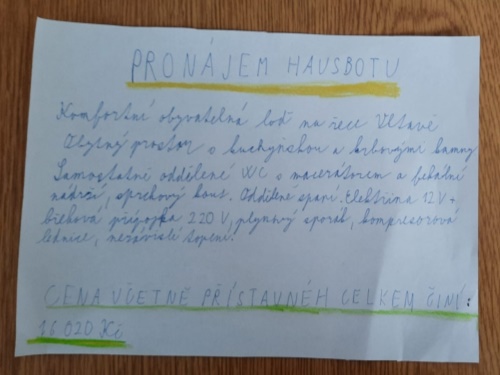 PRONÁJEM HAUSBOTU
Komfortní obyvatelná loď na řece Vltavě
Obytný prostor s kuchyňskou a krbovými kamny
Samostatně oddělené WC s macerátorem a fekální
nádrží, sprchový kout. Oddělené spaní. Elektřina 12V +
břehová přípojka 220 V, plynový sporák, kompresorová
lednice, nezávislé topení.
CENA VČETNĚ PŘÍSTAVNÉH CELKEM ČINÍ:
16 020 Kč